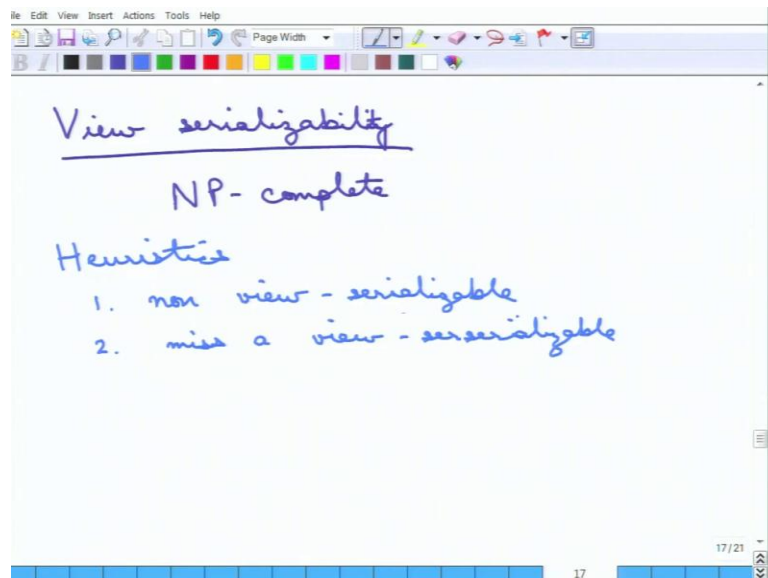 ile Edit View Insert Actions Tools Help
Page Width
B I
View serializability
NP-complete
Heuristics
1. non view-serializable
2. miss a view-serserializable
17/21
17